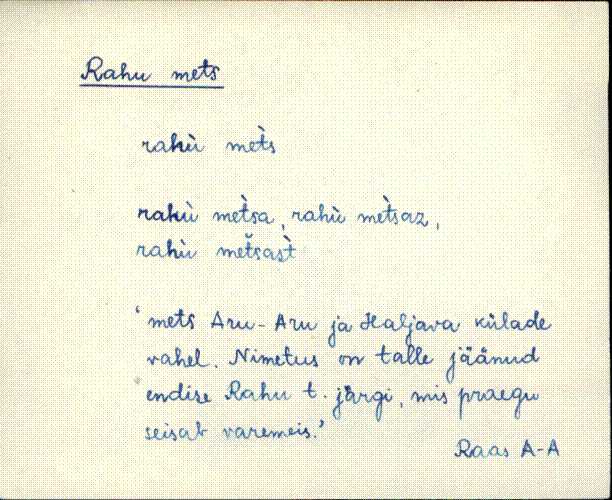 Rahu mets
rahù met̀s
rahù met̀sa, rahù met̀saz,
rahù metšast̀
‘mets Aru-Aru ja Haljava külade
vahel. Nimetus on talle jäänud
endise Rahu t. järgi, mis praegu
seisab varemeis.’
Raas A-A